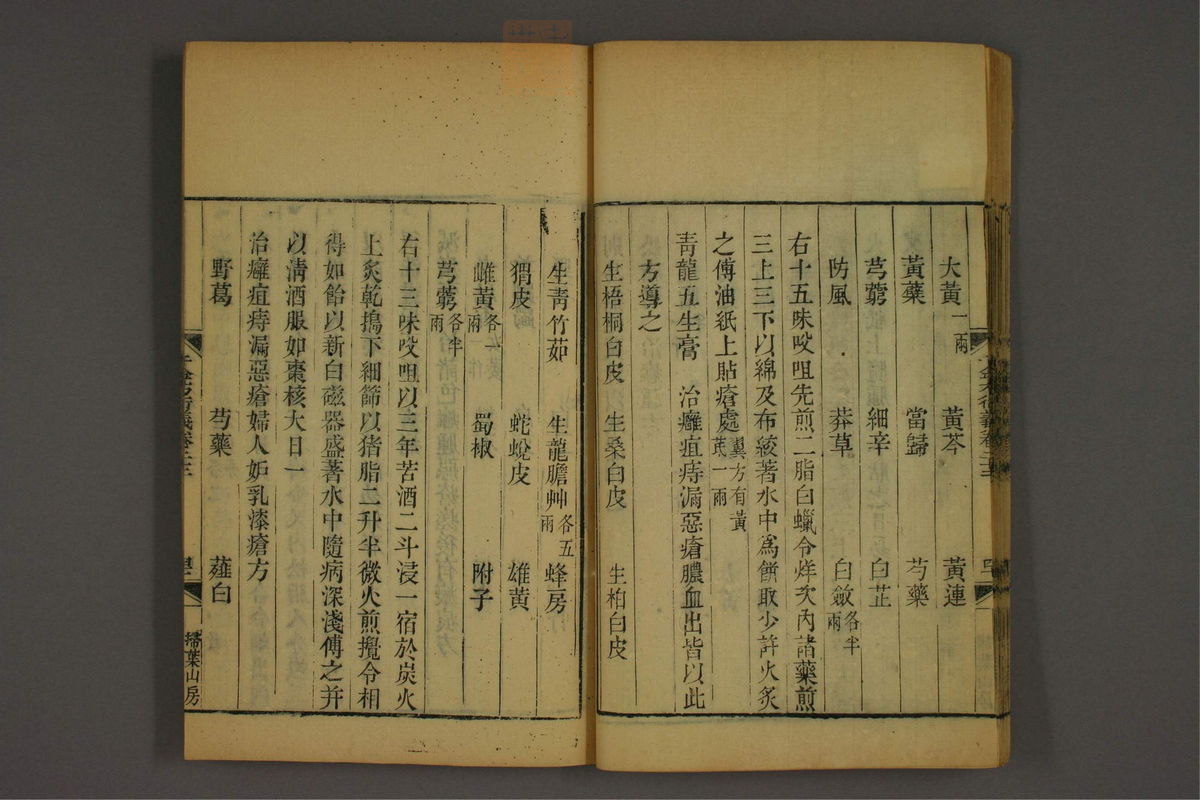 大黃一兩 黃芩 黃連
黃蘗 當歸 芍藥
芎藭 細辛 白芷
防風 莽草 白蘞各半兩
右十五味㕮咀先煎二脂白蠟令烊次內諸藥煎
三上三下以綿及布絞著水中為餅取少許火炙
之傅油紙上貼瘡處翼方有黃芪一兩
青龍五生膏 治癰疽痔漏惡瘡膿血出皆以此
方導之
生梧桐白皮 生桑白皮 生柏白皮
生青竹茹 生龍膽艸各五兩 蜂房
猬皮 蛇蛻皮 雄黃
雌黃各一兩 蜀椒 附子
芎藭各半兩
右十三味㕮咀以三年苦酒二斗浸一宿於炭火
上炙乾搗下細篩以猪脂二升半微火煎攪令相
得如飴以新白磁器盛著水中隨病深淺傅之并
以清酒服如棗核大日一
治癰疽痔漏惡瘡婦人妒乳漆瘡方
野葛 芍藥 薤白
掃葉山房